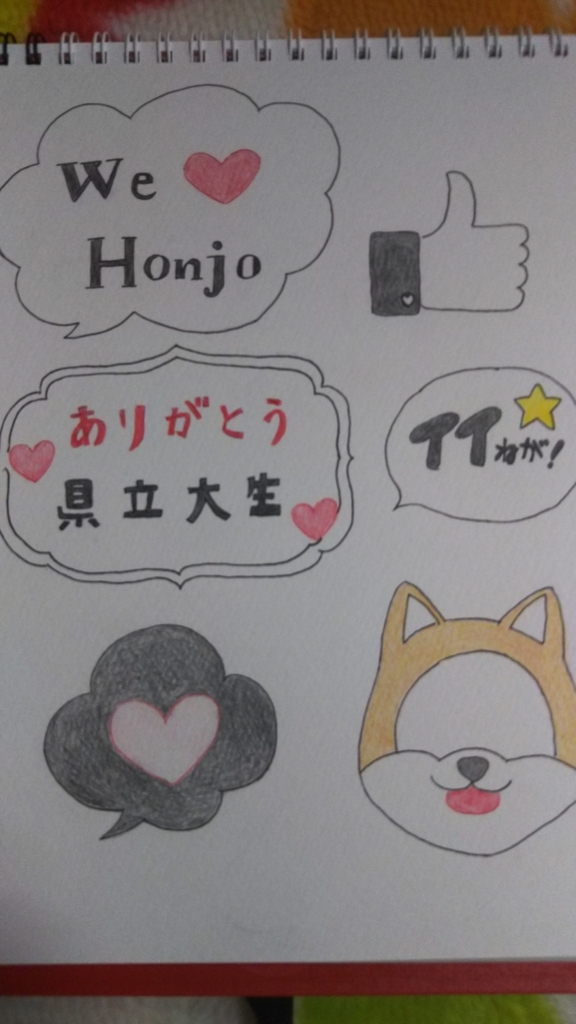 We ♥
Honjo
ありがとう
県立大生
イイ
ねが!